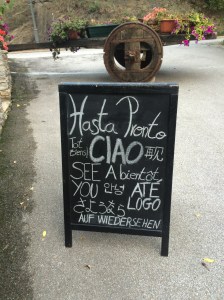 Hasta Pronto
Tot CIAO
SEE A bientôt
YOU 안녕 ATÉ
さようなら LOGO
AUF WIEDERSEHEN